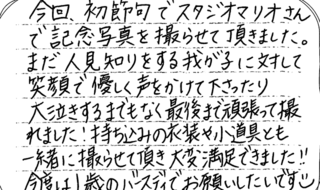 今回、初節句でスタジオマリオさん
で記念写真を撮らせて頂きました。
まだ人見知りをする我が子に対して
笑顔で優しく声をかけて下さったり
大泣きするまでもなく最後まで頑張って撮
れました!持ち込みの衣装や小道具とも
一緒に撮らせて頂き大変満足できました!!
今度は1歳のバースディでお願いしたいです